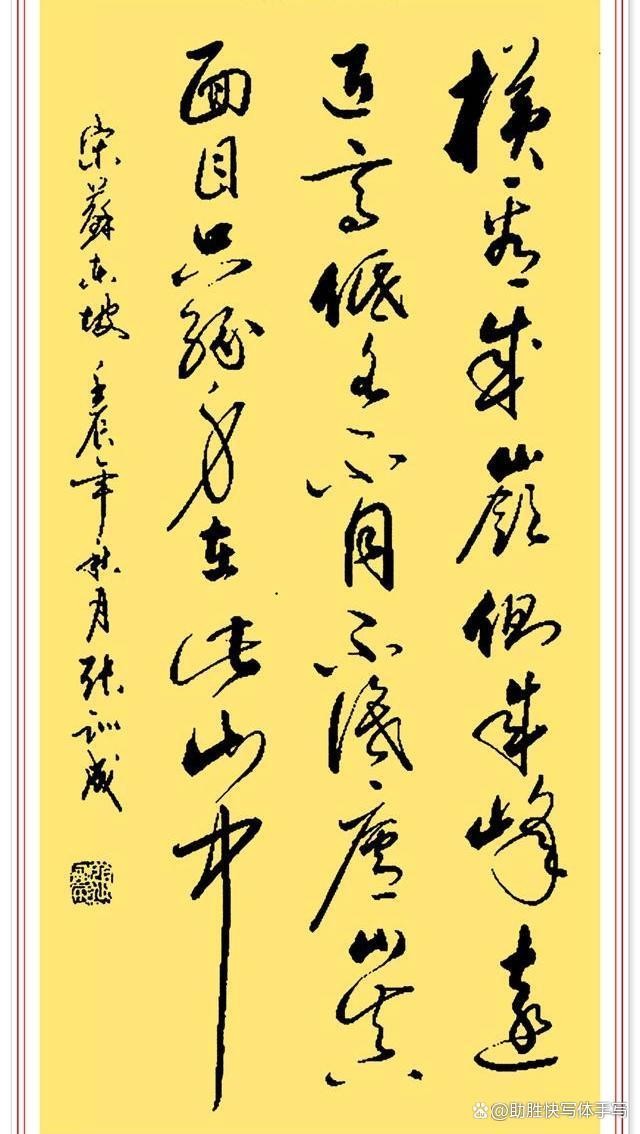 横看成嶺側成峰遠
近高低各不同不識廬山真
面目只緣身在此山中
宋蘇東坡 壬辰年秋月 张训成
@助胜快写体手写